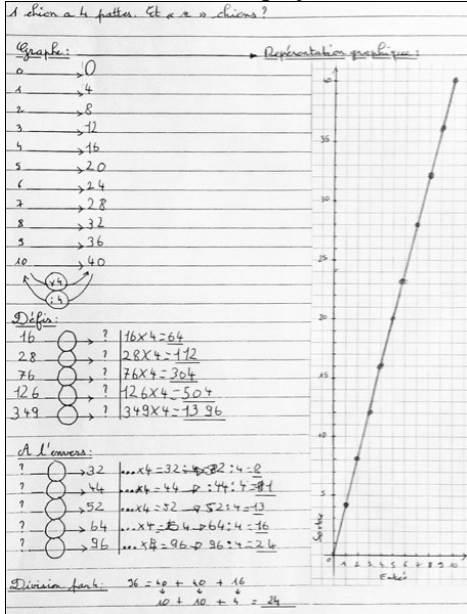 1 chien a 4 pattes. Et « n » chiens ?
Graphe :
Représentation graphique :
0 → 0
1 → 4
2 → 8
3 → 12
4 → 16
5 → 20
6 → 24
7 → 28
8 → 32
9 → 36
10 → 40
x4
:4
Défis :
16 → ? 16x4=64
28 → ? 28x4=112
76 → ? 76x4=304
126 → ? 126x4=504
349 → ? 349x4=1396
A l'envers :
? → 32 ...x4=32 → 32:4=8
? → 44 ...x4=44 → :44:4=11
? → 52 ...x4=52 → 52:4=13
? → 64 ...x4=64 → 64:4=16
? → 96 ...x4=96 → 96:4=24
Division par 4 : 96 = 40 + 40 + 16
10 + 10 + 4 = 24
40
35
30
25
20
15
10
5
Sortie
1 2 3 4 5 6 7 8 9 10
Entrée